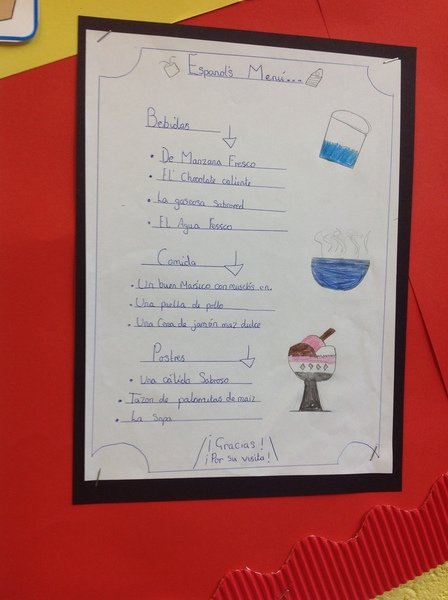 Espanol's Menú...
Bebidas
De Manzana Fresco
El Chocolate caliente
La gaseosa Sabrored
El Agua Fessco
Comida
Un buen Marisco con muscles en.
Una puella de pollo
Una Cena de jamón maz dulce
Postres
Una cálida Sabroso
Tazon de palomitas de maiz
La Sopa
¡Gracias!
¡Por su visita!